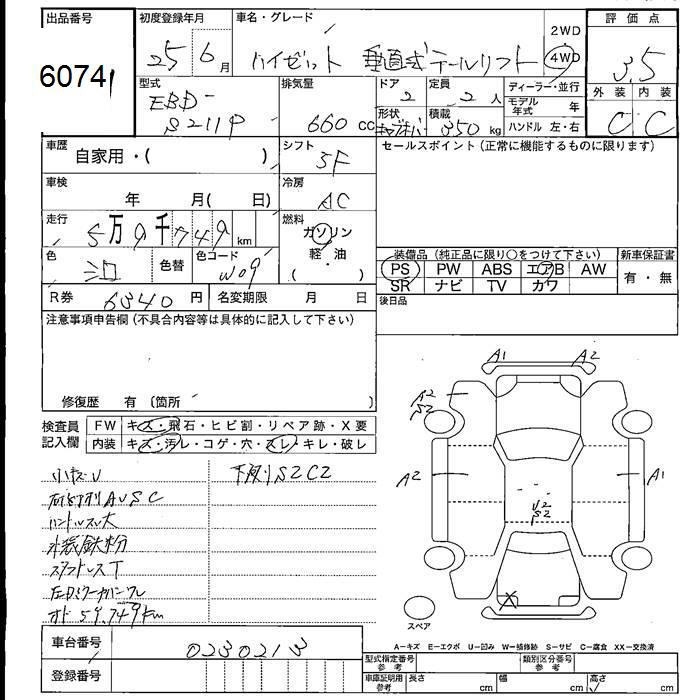 出品番号
60741
初度登録年月
25 6月
車名・グレード
ハイゼット 垂直式テールリフト
2WD
4WD
評価点
3.5
外装 内装
C C
型式
EBD-
S211P
排気量
660 cc
ドア
2
定員
2 人
形状
積載
350 kg
ディーラー・並行
モデル年式 年
ハンドル 左・右
車歴
自家用・( )
シフト
5F
セールスポイント(正常に機能するものに限ります)
車検
年 月( 日)
冷房
AC
走行
5万9千749 km
燃料
ガソリン
軽・油
( )
色
色替
色コード
W09
装備品(純正品に限り○をつけて下さい)
新車保証書
PS PW ABS エアB AW
SR ナビ TV カワ
有・無
R券
6340 円
名変期限 月 日
後日品
注意事項申告欄(不具合内容等は具体的に記入して下さい)
修復歴 有(箇所 )
検査員
記入欄
FW キズ・飛石・ヒビ割・リペア跡・X要
内装 キズ・汚レ・コゲ・穴・スレ・キレ・破レ
小キズU
下廻りS2C2
AUSC
ハンドルスレ大
外装鉄粉
スタッドレスT
オド59,749km
A1 A2
A2
S2
A2
A1
U2
S2
X
スペア
A-キズ E-エクボ U-凹み W-補修跡 S-サビ C-腐食 XX-交換済
車台番号
0230213
登録番号
型式指定番号
参考
類別区分番号
参考
車庫証明用
参考
長さ cm 幅 cm 高さ cm